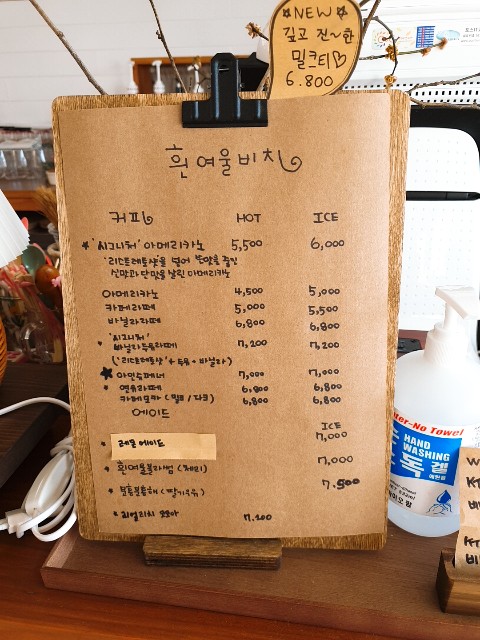 ★NEW★
깊고 진~한
밀크티♡
6.800
흰여울비치
커피 HOT ICE
★'시그니처' 아메리카노 5,500 6,000
신맛과 단맛을 살린 아메리카노
아메리카노 4,500 5,000
카페라떼 5,000 5,500
바닐라라떼 6,800 6,800
'시그니처'
바닐라두유라떼 7,200 7,200
('리스트레토샷' + 두유 + 바닐라)
★ 아인슈페너 7,000 7,000
연유라떼 6,800 6,800
카페모카 (밀크/다크) 6,800 6,800
에이드 ICE
레몬 에이드 7,000
흰여울블라썸 (체리) 7,000
7.500
리얼리치 쪼꼬 7.200
Water-No Towel
HAND
WASHING
독겔